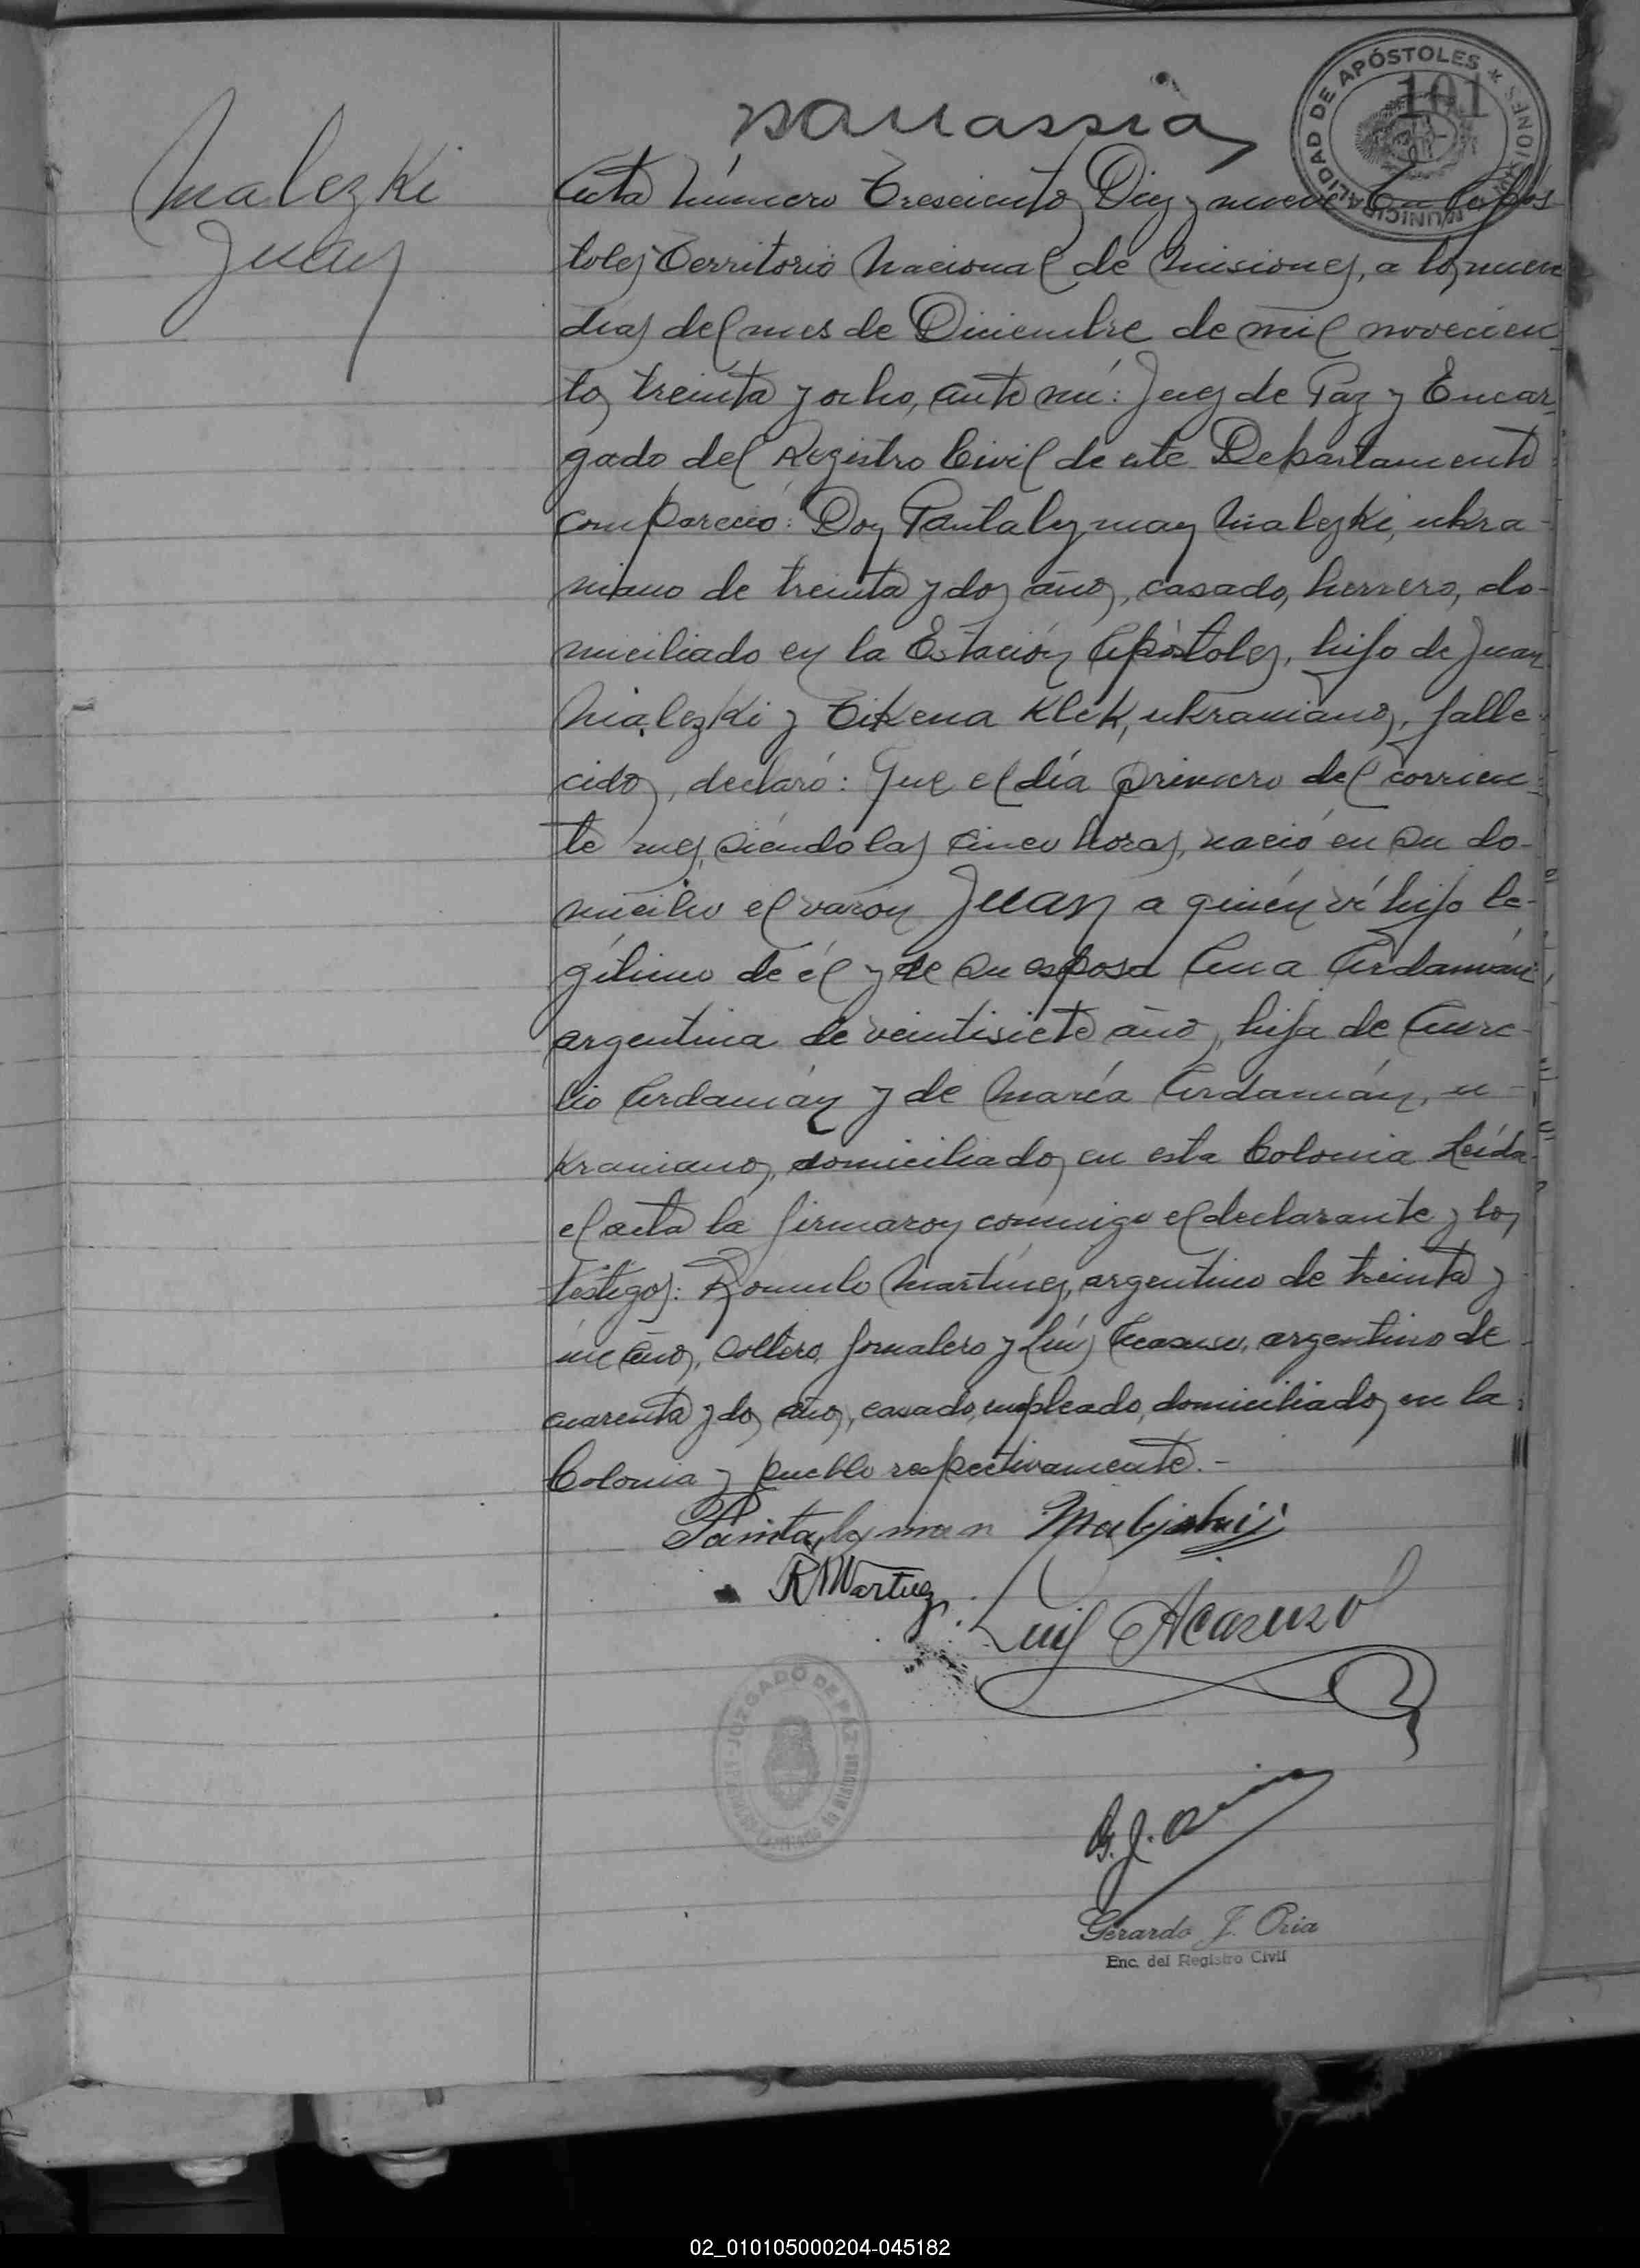 MUNICIPALIDAD DE APÓSTOLES * MISIONES
101
Malezki
Juan
Acta Número Trescientos Diez y nueve En Após
toles Territorio Nacional de Misiones, a los nueve
dias del mes de Diciembre de mil novecien
tos treinta y ocho, ante mí: Juez de Paz y Encar
gado del Registro Civil de este Departamento
compareció: Don Pantalymon Malezki, ukra
niano de treinta y dos años, casado, herrero, do-
miciliado en la Estación Apóstoles, hijo de Juan
Malezki y Tikena Klek, ukranianos, falle
cidos, declaró: Que el día primero del corrien
te mes, siéndo las cinco horas, nació en su do-
micilio el varón Juan a quién ví hijo le-
gítimo de él y de su esposa Ana Ardamán
argentina de veintisiete años, hija de Aure-
lio Ardamán y de María Ardamán, u-
kranianos, domiciliados en esta Colonia Leída
el acta la firmaron conmigo el declarante y los
testigos: Rómulo Martínez, argentino de treinta y
un años, soltero, jornalero y Luís Acasuso, argentino de
cuarenta y dos años, casado, empleado, domiciliados en la
Colonia y pueblo respectivamente.-
Pantalymon
R Martinez
Luis Acasuso
JUZGADO DE PAZ
G. J. Oria
Gerardo J. Oria
Enc. del Registro Civil
02_010105000204-045182